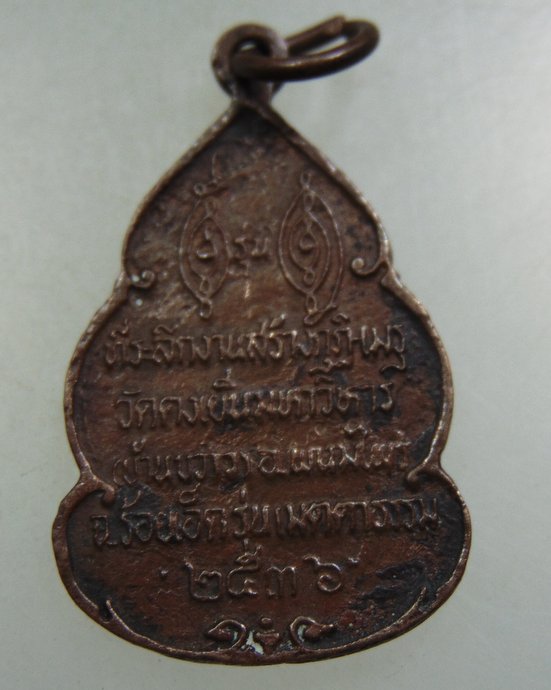 ที่ระลึกงานสร้างกุฏิ-เมรุ
วัดดงเย็นมหาวิหาร
(บ้านขว้าว) อ.
จ.ร้อยเอ็ด รุ่นเมตตาธรรม
๒๕๓๖